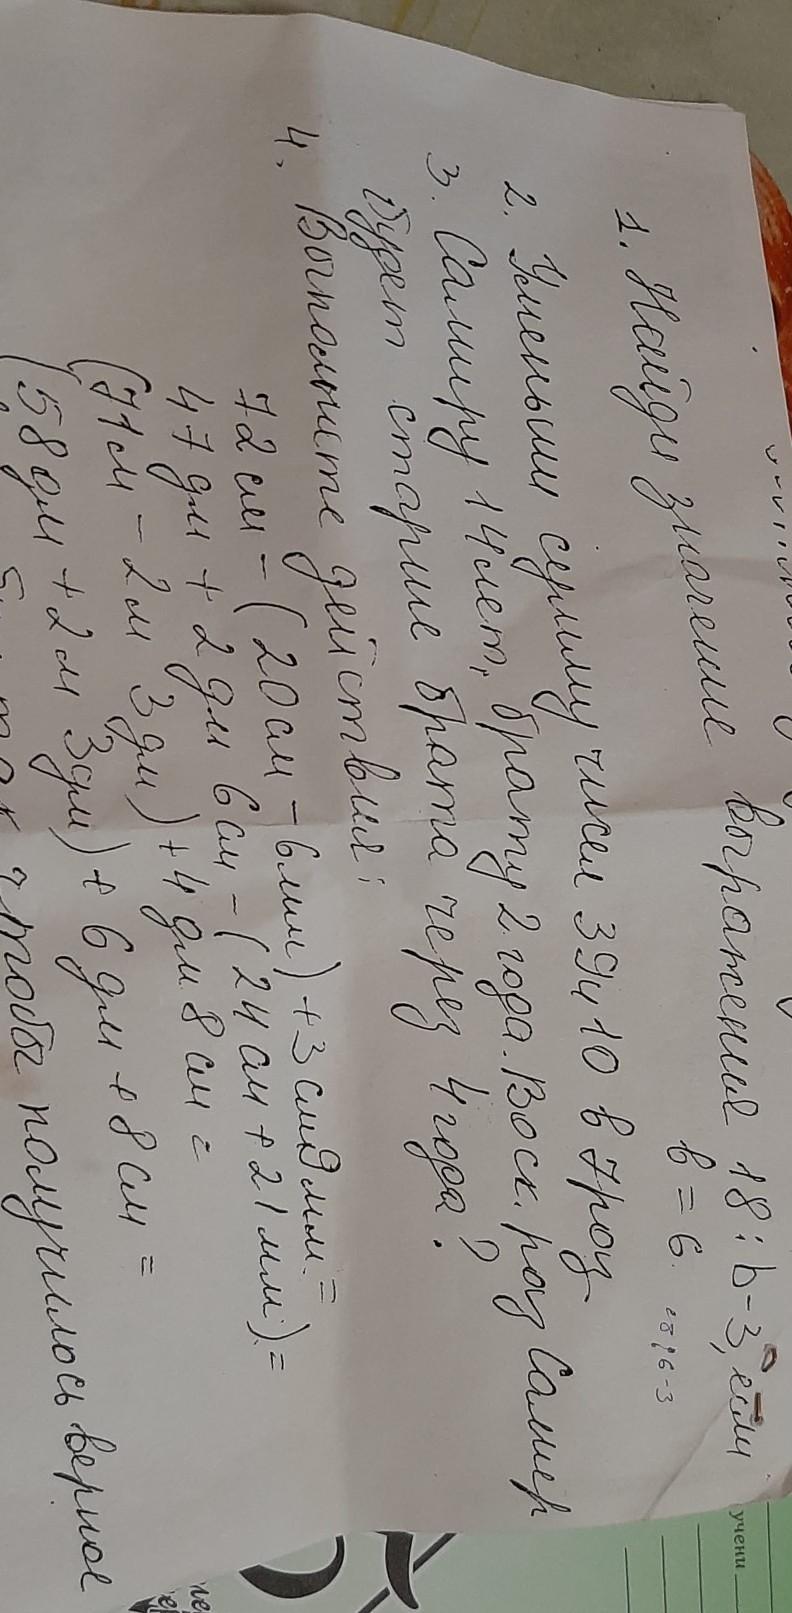 1. Найди значение выражения 18:b-3, если
b=6.
18:6-3
2. Уменьши сумму чисел 39и10 в 7раз
3. Самиру 14лет, брату 2года. Воск. раз Самир
будет старше брата через 4года?
4. Выполните действия:
72см-(20см-6мм)+3см9мм=
47дм+2дм6см-(24см+21мм)=
(71см-2м3дм)+4дм8см=
(58дм+2м3дм)+6дм+8см=
чтобы получилось верное
учени